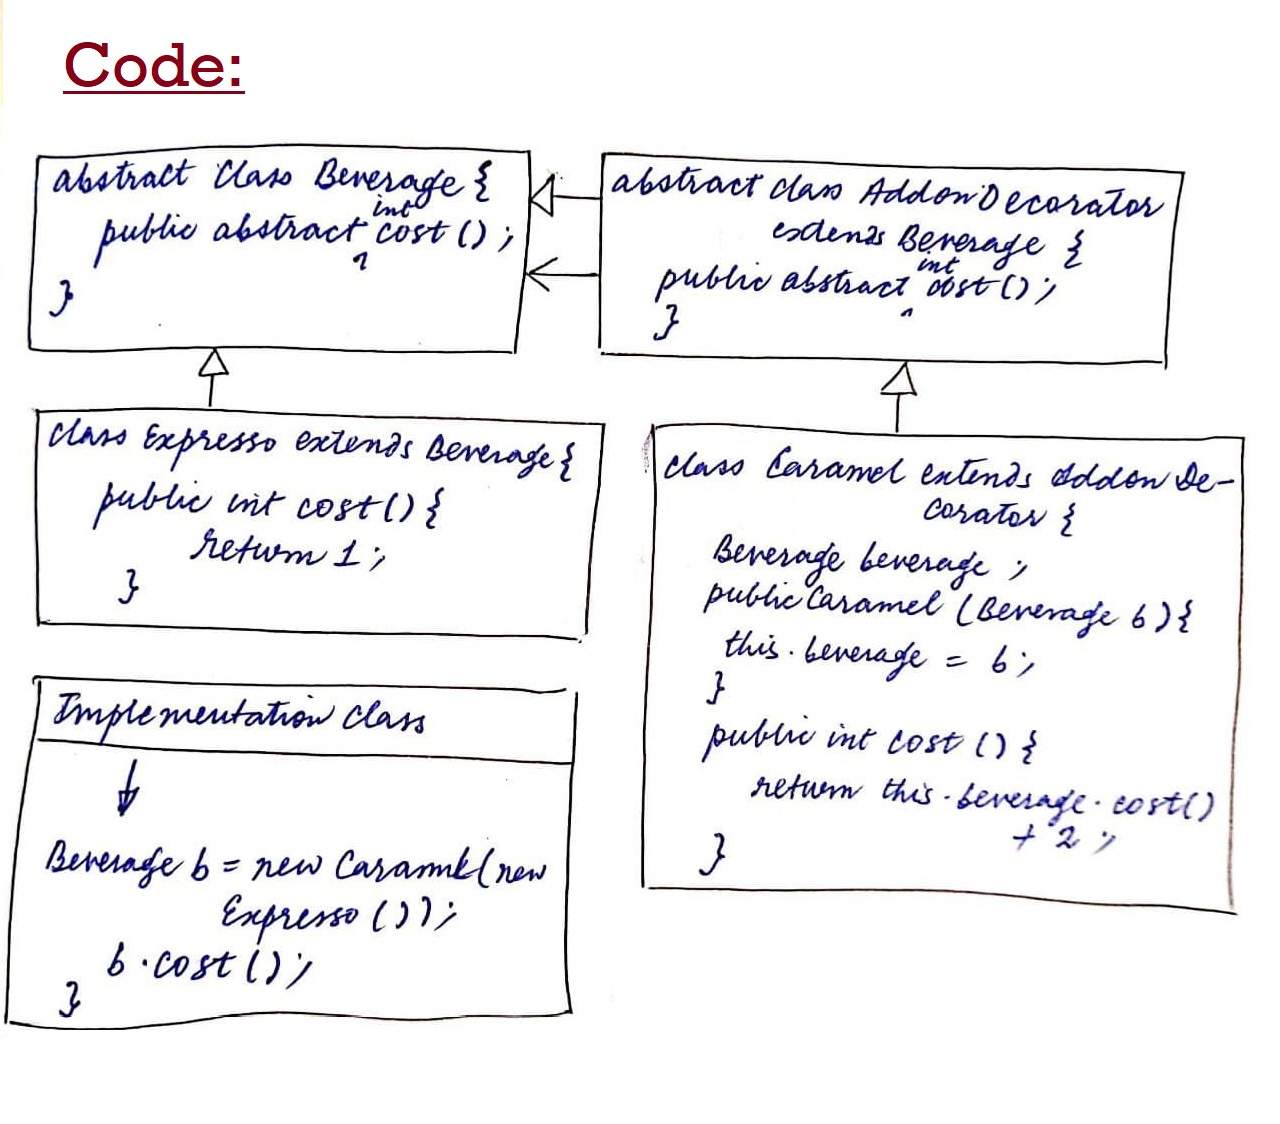 Code:
abstract Class Beverage {
public abstract int cost();
}
abstract class AddonDecorator
extends Beverage {
public abstract int cost();
}
class Expresso extends Beverage {
public int cost() {
return 1;
}
class Caramel extends Addon De-
corator {
Beverage beverage ;
public Caramel (Beverage b) {
this.beverage = b;
}
public int cost () {
return this.beverage.cost()
+ 2 ;
}
Implementation class
Beverage b = new Caramel(new
Expresso ());
b.cost();
}